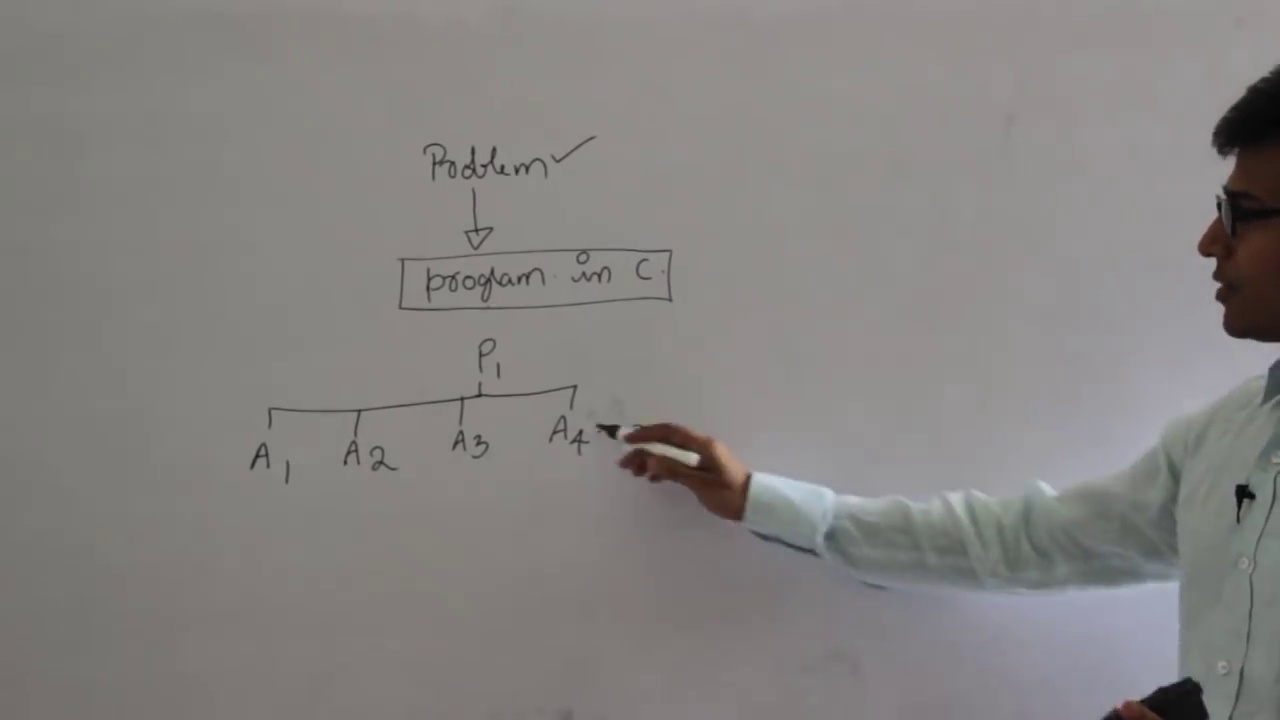 Problem ✓
program in C.
P1
A1 A2 A3 A4